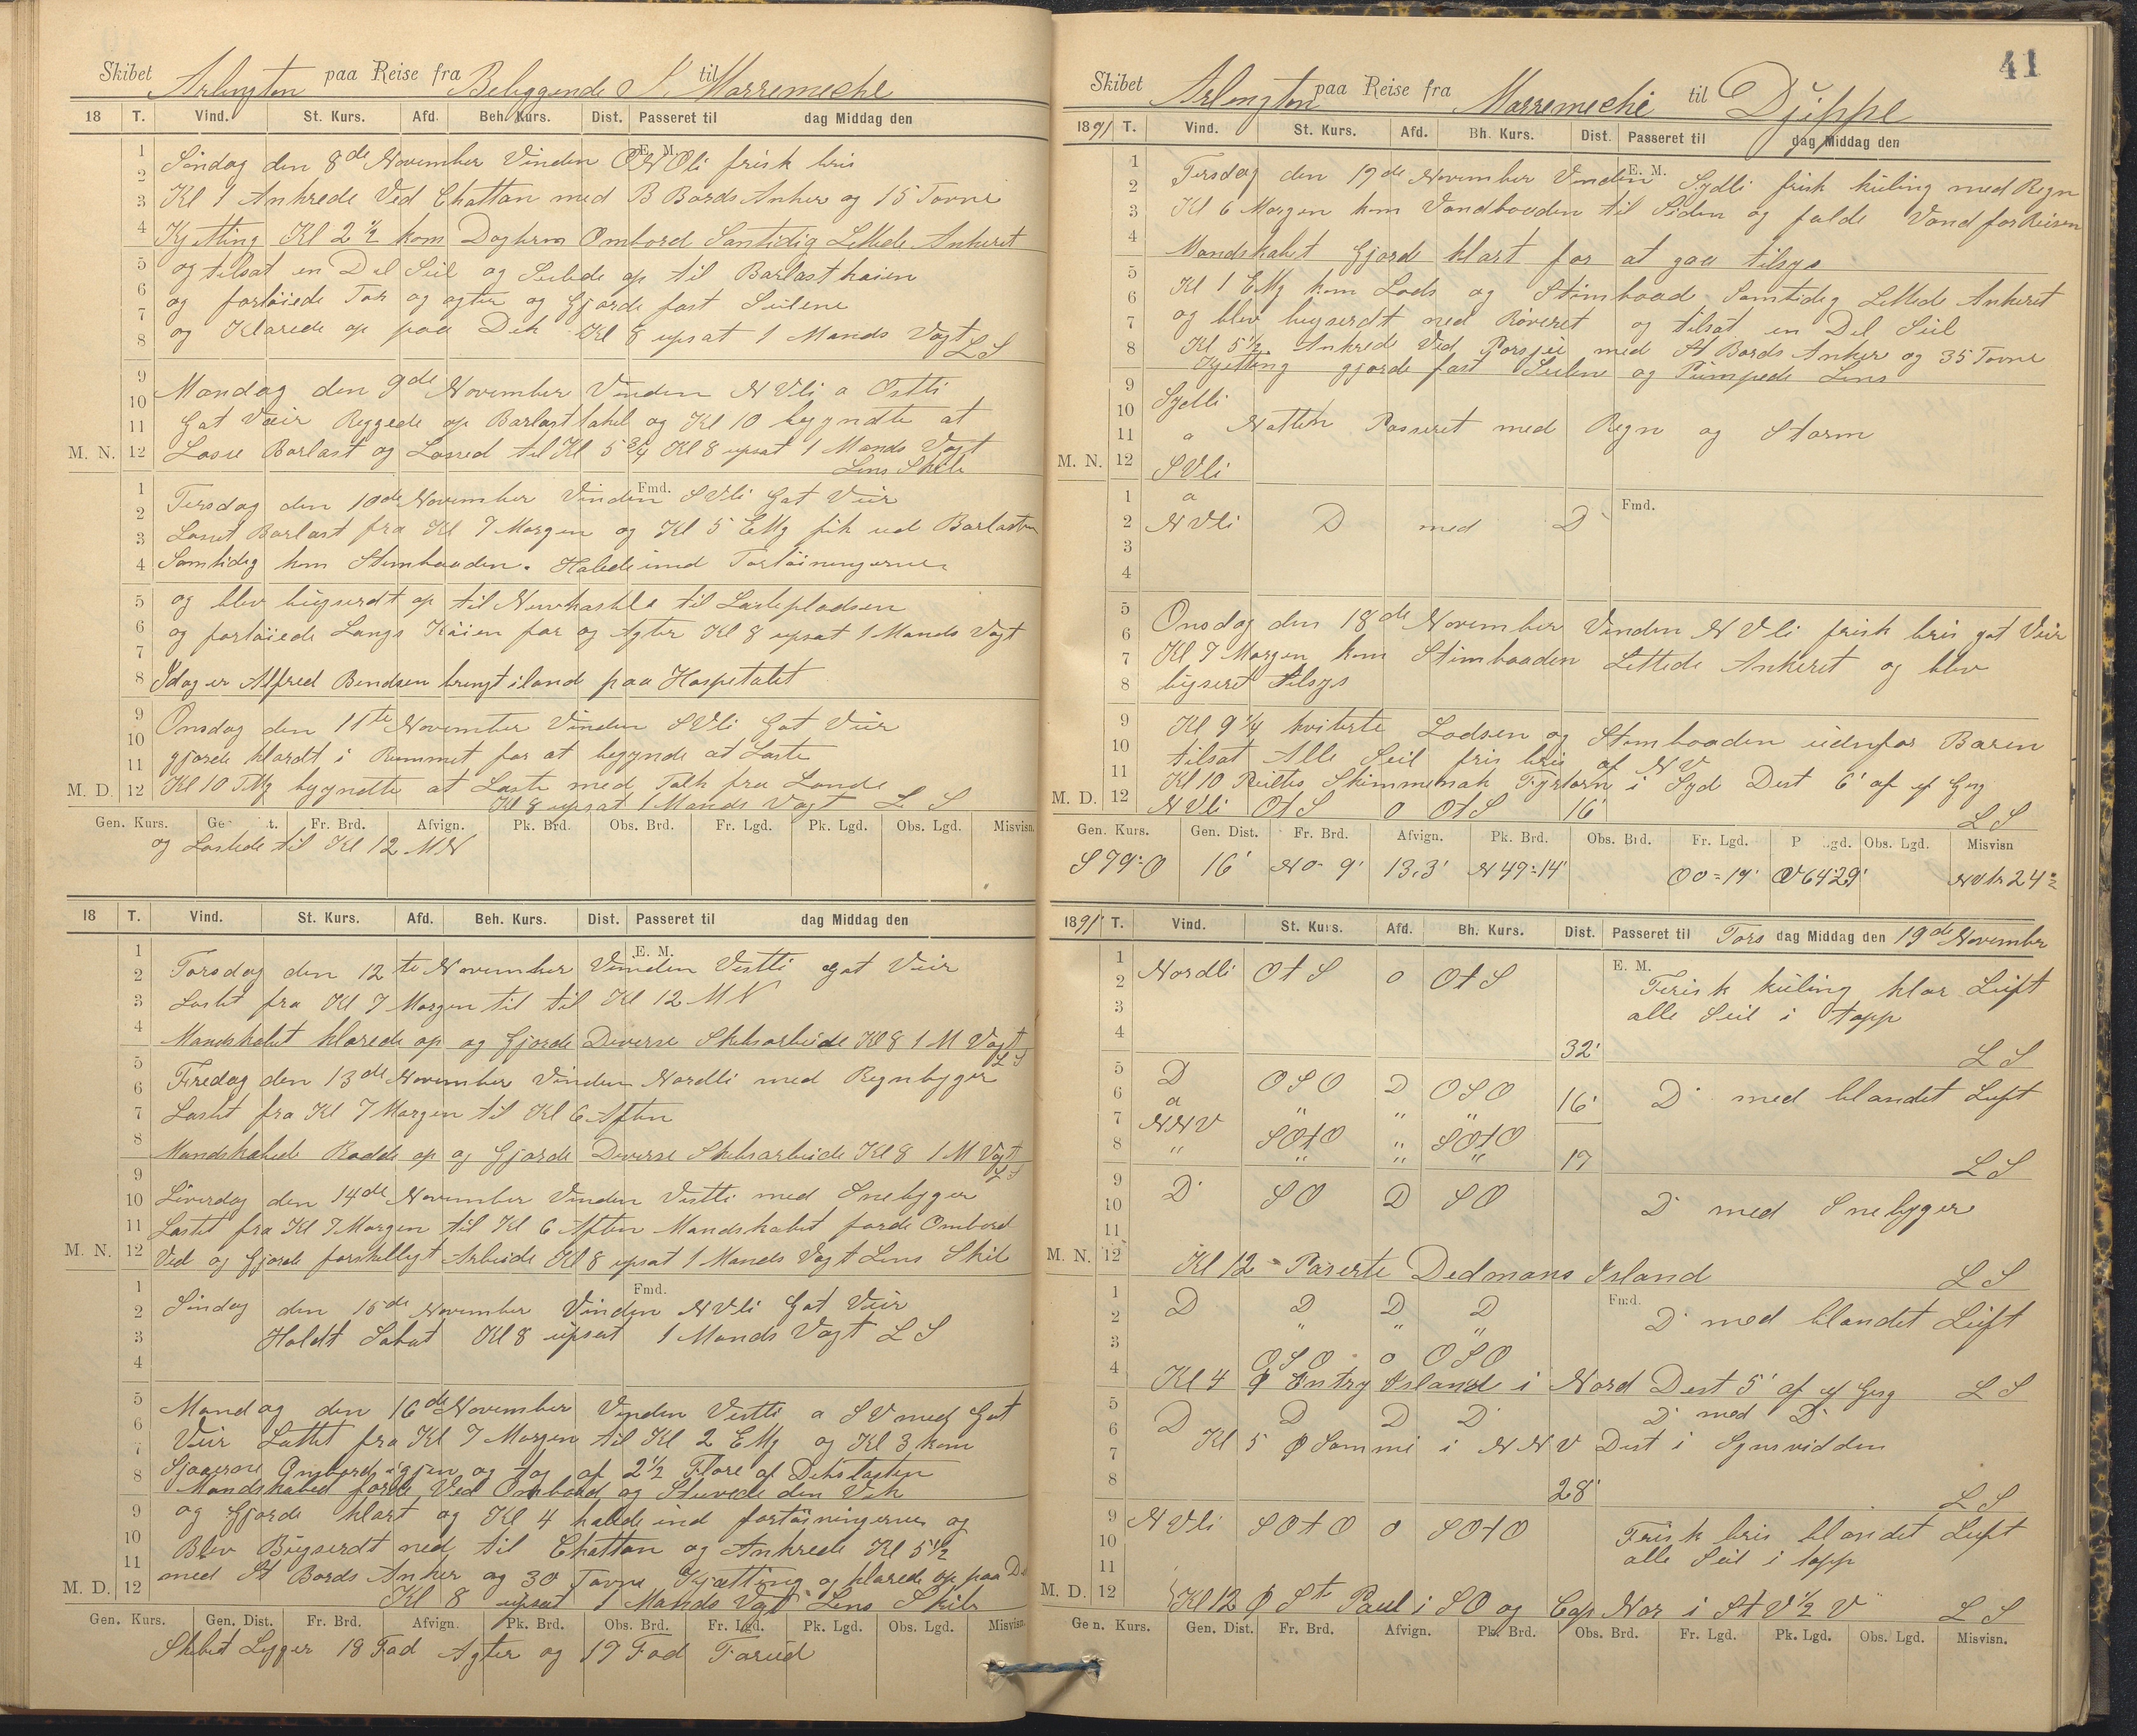 Skibet Arlington paa Reise fra Beliggende i til Marremeche
18 T. Vind. St. Kurs. Afd. Beh. Kurs. Dist. Passeret til dag Middag den
E. M.
Søndag den 8de November Vinden ONOli frisk bris
Kl 1 Ankrede Ved Chattan med B Bords Anker og 15 Favne
Kjetting Kl 2 1/2 kom Ombord Samtidig Lettede Ankeret
og tilsat en Del Seil og Seilede op til Barlastkaien
og fortøiede For og agter og Gjorde fast Seilene
og Klarede op paa Dek Kl 8 upsat 1 Mands Vagt L S
Mandag den 9de November Vinden NVli a Ostli
Gat Veir Reggede op Barlasttakel og Kl 10 begyndte at
Losse Barlast og Lossed til Kl 5 3/4 Kl 8 upsat 1 Mands Vagt
Lens Skib
M. N.
Fmd.
Tirsdag den 10de November Vinden SVli Gat Veir
Losset Barlast fra Kl 7 Morgen og Kl 5 EMg fik ud Barlasten
Samtidig kom Stimbaaden. Halede ind Fortøiningerne
og blev bugserdt op til Newkastle til Lastepladsen
og fortøiede Langs Kaien for og Agter Kl 8 upsat 1 Mands Vagt
Idag er Alfred Bendsen brengt iland paa Hospetalet
Onsdag den 11te November Vinden SVli Gat Veir
gjorde klardt i Rummet for at begynde at Laste
Kl 10 FMg begyndte at Laste med Folk fra Lande
Kl 8 upsat 1 Mands Vagt L S
M. D.
Gen. Kurs. Fr. Brd. Afvign. Pk. Brd. Obs. Brd. Fr. Lgd. Pk. Lgd. Obs. Lgd. Misvisn.
og Lastede til Kl 12 MN
18 T. Vind. St. Kurs. Afd. Beh. Kurs. Dist. Passeret til dag Middag den
E. M.
Torsdag den 12te November Vinden Vestli Gat Veir
Lastet fra Kl 7 Morgen til til Kl 12 MN
Mandskabet klarede op og Gjorde Diverse Skibsarbeide Kl 8 1 M Vagt
L S
Fredag den 13de November Vinden Nordli med Regnbyger
Lastet fra Kl 7 Morgen til Kl 6 Aften
Mandskabede Radde op og Gjorde Diverse Skibsarbeide Kl 8 1 M Vagt
L S
Løverdag den 14de November Vinden Vestli med Snebyger
Lastet fra Kl 7 Morgen til Kl 6 Aften Mandskabet førde Ombord
Ved og Gjorde forskelligt Arbeide Kl 8 upsat 1 Mands Vagt Lens Skib
M. N.
Fmd.
Søndag den 15de November Vinden NVli Gat Veir
Holdt Sabat Kl 8 upsat 1 Mands Vagt L S
Mandag den 16de November Vinden Vestli a SV med Gat
Veir Lastet fra Kl 7 Morgen til Kl 2 EMg og Kl 3 kom
Sjauerne Ombord igjen og tog af 2 1/2 Flore af Dekslasten
Mandskabed førde Ved Ombord og Stuvede den Vek
og Gjorde klart og Kl 4 halede ind fortøiningerne og
Blev Bugserdt ned til Chattan og Ankrede Kl 5 1/2
med St Bords Anker og 30 Favne Kjætting og klarede op paa D
Kl 8 upsat 1 Mands Vagt Lens Skib
M. D.
Gen. Kurs. Gen. Dist. Fr. Brd. Afvign. Pk. Brd. Obs. Brd. Fr. Lgd. Pk. Lgd. Obs. Lgd. Misvisn.
Skibet Legger 18 Fod Agter og 17 Fod Forud
41
Skibet Arlington paa Reise fra Marremeche til Djeppe
1891 T. Vind. St. Kurs. Afd. Bh. Kurs. Dist. Passeret til dag Middag den
E. M.
Tirsdag den 17de November Vinden Sydli frisk kuling med Regn
Kl 6 Morgen kom Vandbaaden til Siden og fulde Vand for Reisen
Mandskabet Gjorde klart for at gaa tilsys
Kl 1 EMg kom Lods og Stimbaad Samtidig Lettede Ankeret
og blev bugserdt ned Røveret og tilsat en Del Seil
Kl 5 1/2 Ankrede Ved med St Bords Anker og 35 Favne
Kjetting gjorde fast Seilene og Pumpede Lens
Sydli
a Natten Passeret med Regn og Storm
M. N.
SVli
a
Fmd.
NVli D med D
Onsdag den 18de November Vinden NVli frisk bris gat Veir
Kl 7 Morgen kom Stimbaaden Lettede Ankeret og blev
bugseret tilsys
Kl 9 1/4 kviterte Lodsen og Stimbaaden udenfor Baren
tilsat Alle Seil fris bris af NV
Kl 10 Peiltes Skimmenak Fyrtorn i Syd Dist 6' af ef Gisg
M. D. NVli OtS o OtS 16'
L S
Gen. Kurs. Gen. Dist. Fr. Brd. Afvign. Pk. Brd. Obs. Brd. Fr. Lgd. P gd. Obs. Lgd. Misvisn
S 79° O 16' N 0- 9' 13,3' N 47° 14' O 0=19' V 64 29' 24°
1891 T. Vind. St. Kurs. Afd. Bh. Kurs. Dist. Passeret til Tors dag Middag den 19de November
E. M.
Nordli OtS o OtS Frisk kuling klar Luft
alle Seil i topp
32'
L S
D OSO D OSO 16' D med blandet Luft
a " " "
NNV SOtO " SOtO
" " " " 17
L S
D SO D SO D med Snebyger
M. N. Kl 12 Paserte Dedmans Island L S
Fmd.
D D D D D med blandet Luft
" " "
OSO o OSO
Kl 4 Entry Island i Nord Dist 5' af ef Gisg L S
D D D D D med D
Kl 5 i NNV Dist i Synsvidden
28'
L S
NVli SOtO o SOtO Frisk bris blandet Luft
alle Seil i topp
M. D. Kl 12 St Paul i SO og Cap Nor i StV 1/2 V L S
Gen. Kurs. Gen. Dist. Fr. Brd. Afvign. Pk. Brd. Obs. Brd. Fr. Lgd. Pk. Lgd. Obs. Lgd. Misvisn.